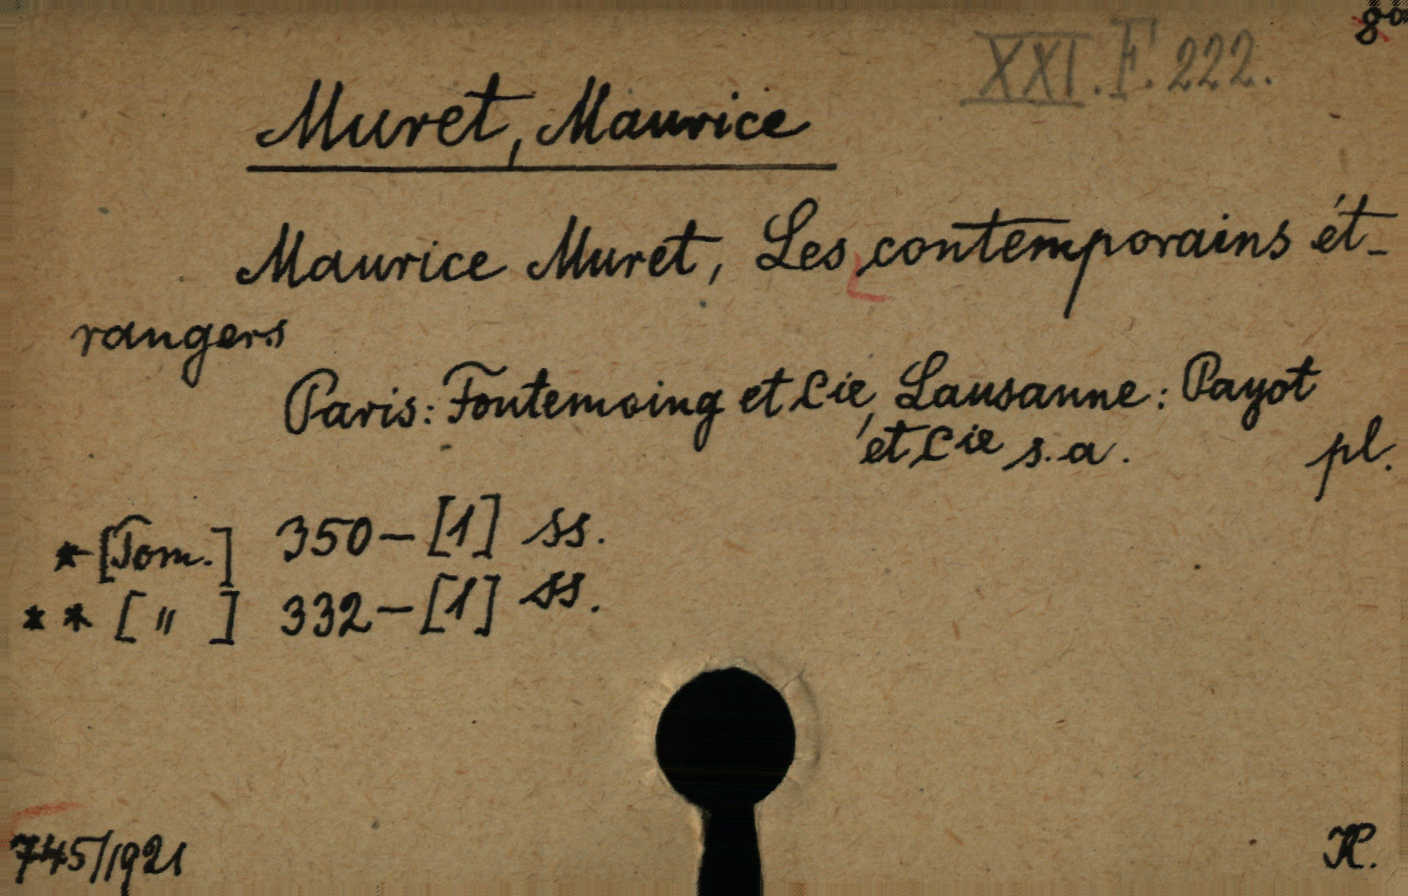 8°
XXI. F. 222.
Muret, Maurice
Maurice Muret, Les contemporains ét-
rangers
Paris: Fontemoing et Cie, Lausanne: Payot
et Cie s. a. pl.
* [Tom.] 350-[1] ss.
* * [ " ] 332-[1] ss.
745/1921
K.